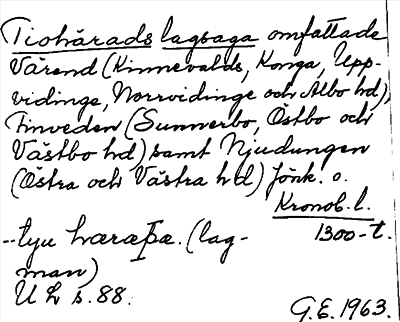 Tiohärads lagsaga omfattade
Värend (Kinnevalds, Konga, Upp-
vidinge, Norrvidinge och Albo hd),
Finveden (Sunnerbo, Östbo och
Västbo hd) samt Njudungen
(Östra och Västra hd) Jönk. o.
Kronob. l.
--tyu hæræþæ. (lag- 1300-t.
man)
U L s. 88.
G.E. 1963.